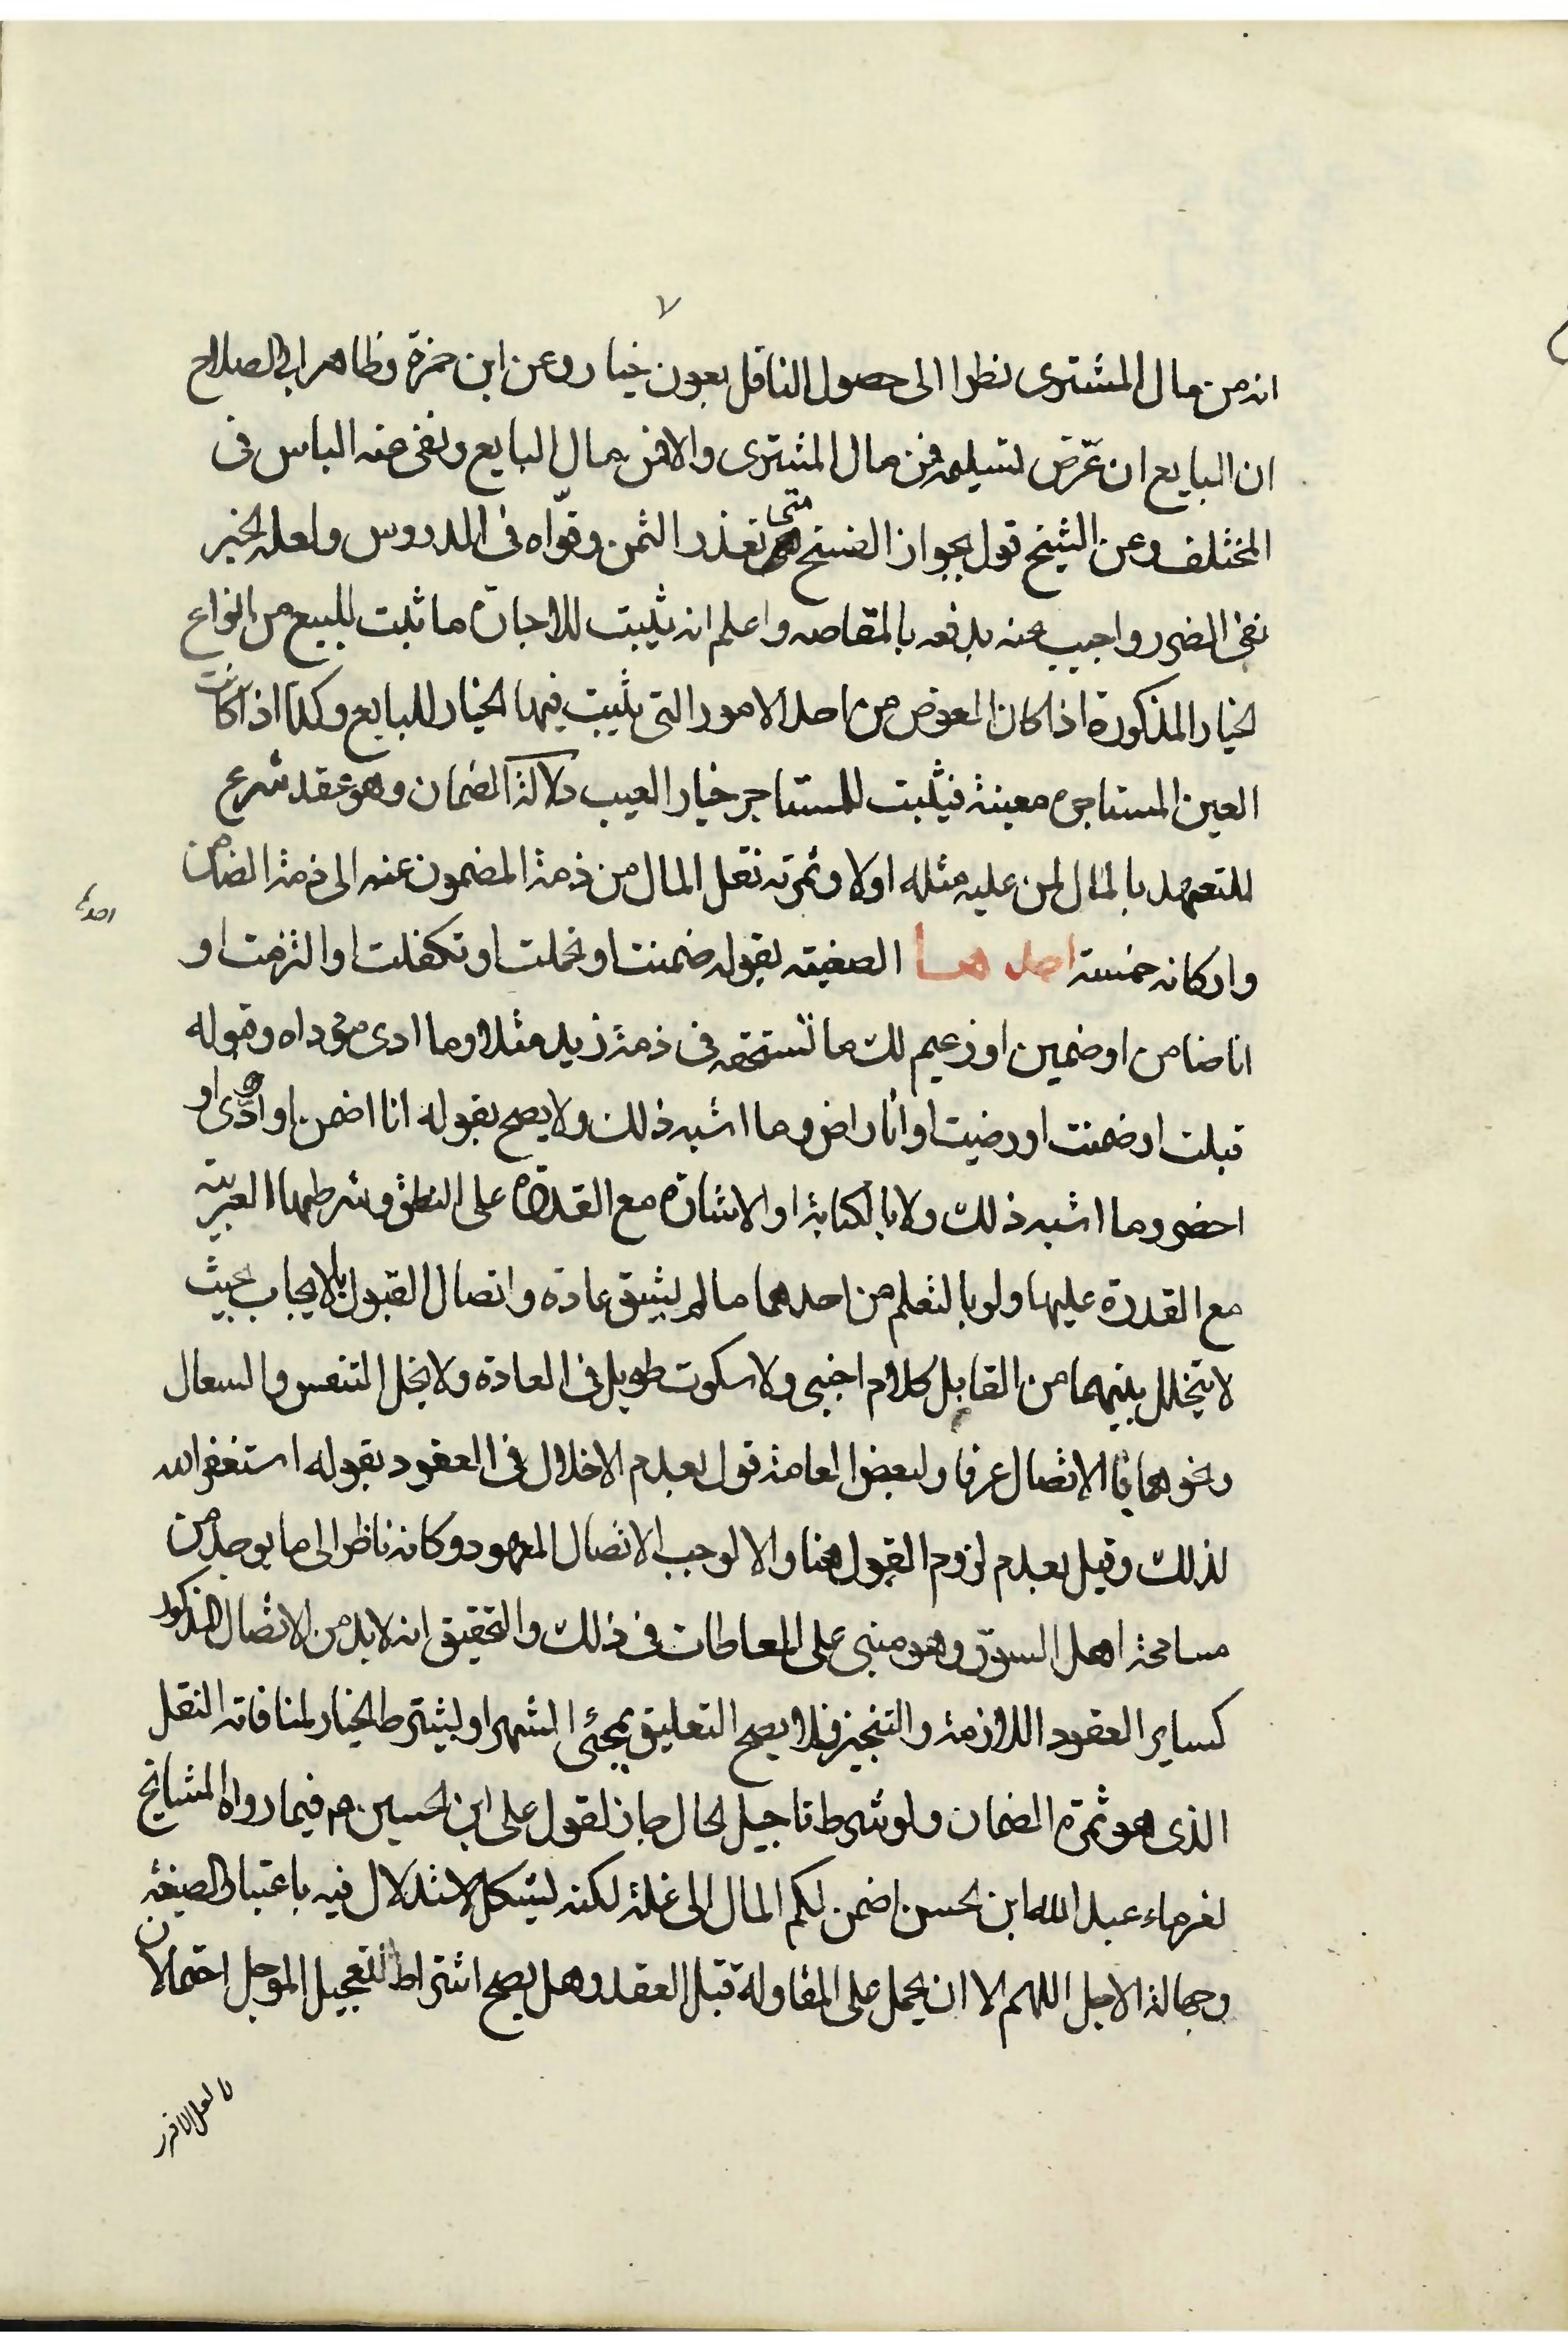 ٧
انه من مال المشترى نظرا الى حصول الناقل بعون خيار وعن ابن حمزة وظاهر ابى الصلاح
ان البايع ان عرّض لتسليمه فمن مال المشترى والا فمن مال البايع ونفى عنه الباس فى
المختلف وعن الشيخ قول بجواز الفسخ متى تعذر الثمن وقوّاه فى الدروس ولعله لخبر
نفى الضرر واجيب عنه بدفعه بالمقاصه واعلم انه يثبت للاجارة ما ثبت للبيع من انواع
الخيار المذكورة اذا كان العوض من احد الامور التى يثبت فيها الخيار للبايع وكذا اذا كانت
العين المستاجرة معينة فيثبت للمستاجر خيار العيب دلالة الضمان وهو عقد شرع
للتعهد بالمال لمن عليه مثله اولا وثمرته نقل المال من ذمة المضمون عنه الى ذمة الضامن
واركانه خمسة احدها الصغيته بقوله ضمنت او تحملت او تكفلت او التزمت او
احدها
انا ضامن او ضمين او زعيم لك ما تستحقه فى ذمة زيد مثلا وما ادى مؤداه وقوله
قبلت او ضمنت او رضيت او انا راض وما اشبه ذلك ولا يصح بقوله انا اضمن او اؤدّى او
احضر وما اشبه ذلك ولا بالكتابة او الاشارة مع القدرة على النطق وشرطهما العربية
مع القدرة عليها ولو بالتعلم من احدهما ما لم يشق عادة واتصال القبول بالايجاب بحيث
لا يتخلل بينهما من القابل كلام اجنبى ولا سكوت طويل فى العادة ولا يخل التنفس والسعال
ونحوهما بالاتصال عرفا ولبعض العامة قول بعدم الاخلال فى العقود بقوله استغفر الله
لذلك وقيل بعدم لزوم القبول هنا والا لوجب الاتصال المعهود وكانه ناظر الى ما يوجد من
مسامحة اهل السوق وهو مبنى على المعاطات فى ذلك والتحقيق انه لا بد من الاتصال المذكور
كساير العقود اللازمة والتنجيز فلا يصح التعليق بمجئ الشهر او يشترط الخيار لمنافاته النقل
الذى هو ثمرة الضمان ولو شرط تاجيل الحال جاز لقول على ابن الحسين ع م فيما رواه المشايخ
لغرماء عبد الله ابن الحسن اضمن لكم المال الى غلة لكنه يشكل الاستدلال فيه باعتبار الصيغة
وجهالة الاجل اللهم الا ان يحمل على المقاولة قبل العقد وهل يصح اشتراط تعجيل الموجل احتمالان
لا لعل الاقرب